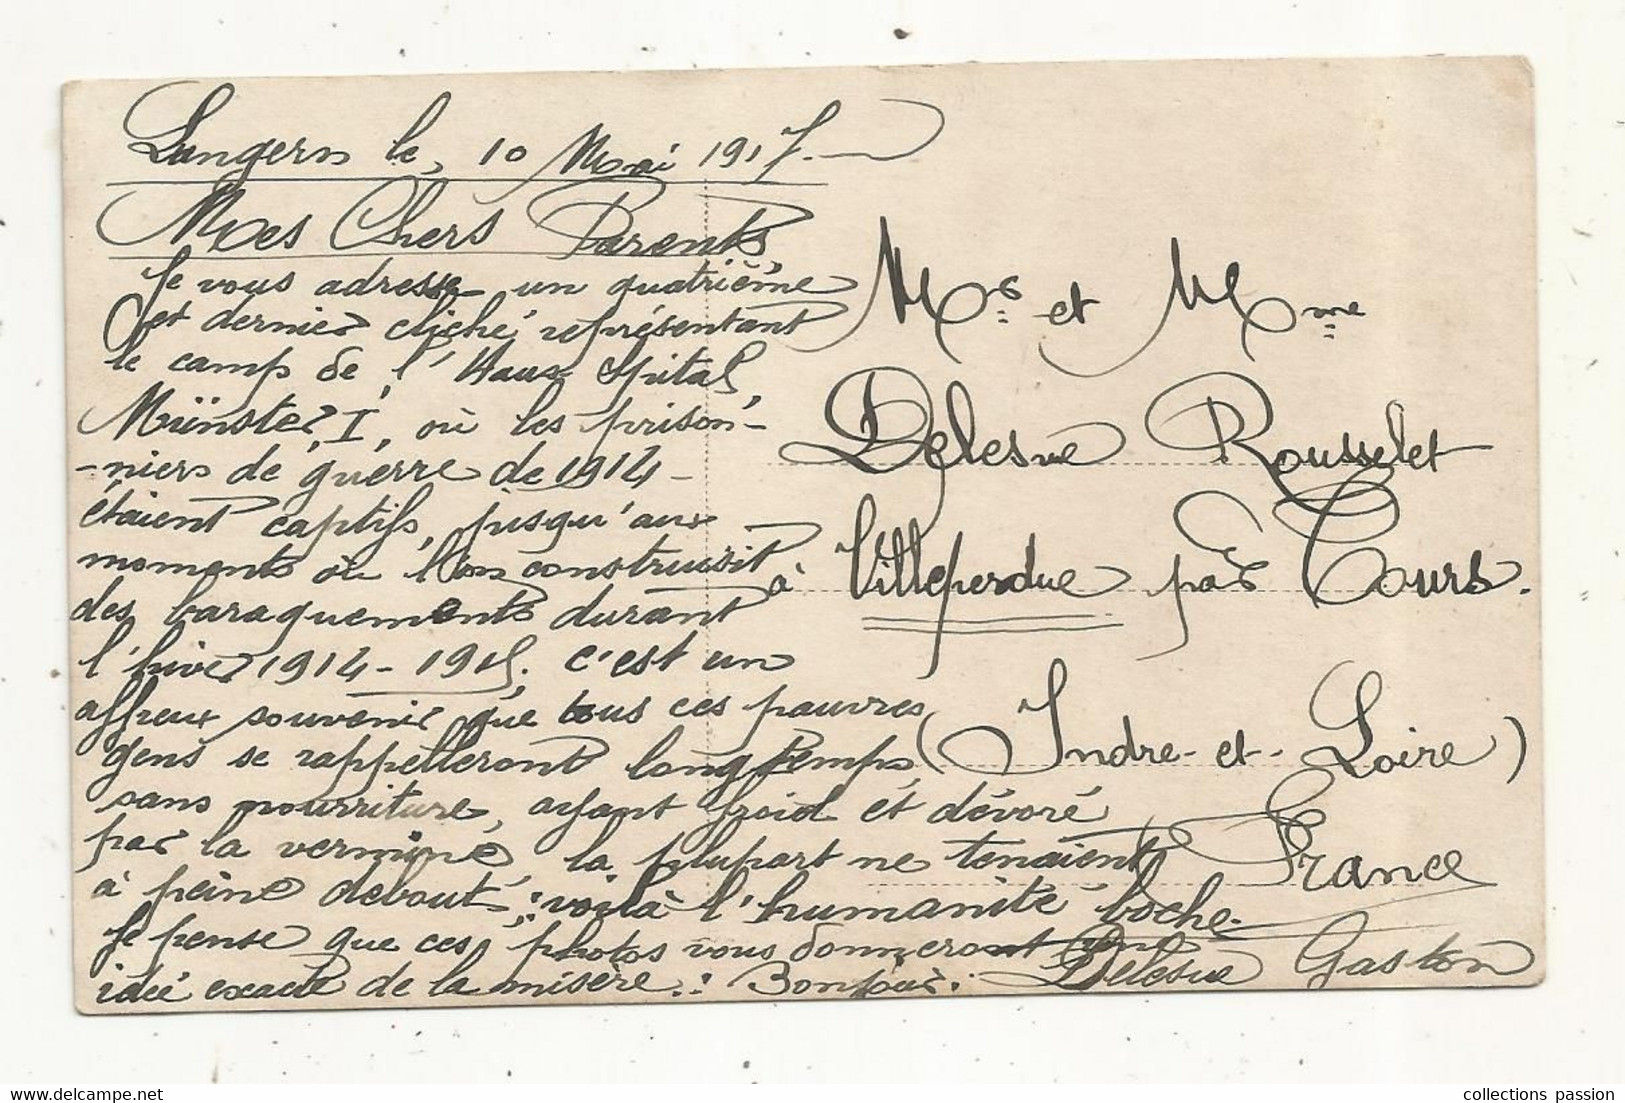 Langern le, 10 Mai 1917.
Mes Chers Parents,
Je vous adresse un quatrième
et dernier cliché représentant
le camp de l'Haus Spital
Münster I, où les prison-
-niers de guerre de 1914-
étaient captifs, jusqu'aux
moments où l'on construisit
des baraquements durant
l'hiver 1914-1915. c'est un
affreux souvenir que tous ces pauvres
gens se rappelleront longtemps,
sans nourriture, ayant froid et dévoré
par la vermine, la plupart ne tenaient
à peine debout; voilà l'humanité boche.
Je pense que ces photos vous donneront une
idée exacte de la misère. Bonjour.
Delesve Gaston
Mr et Mme
Delesve Rousselet
à Villeperdue par Tours.
(Indre-et-Loire)
France
collections passion